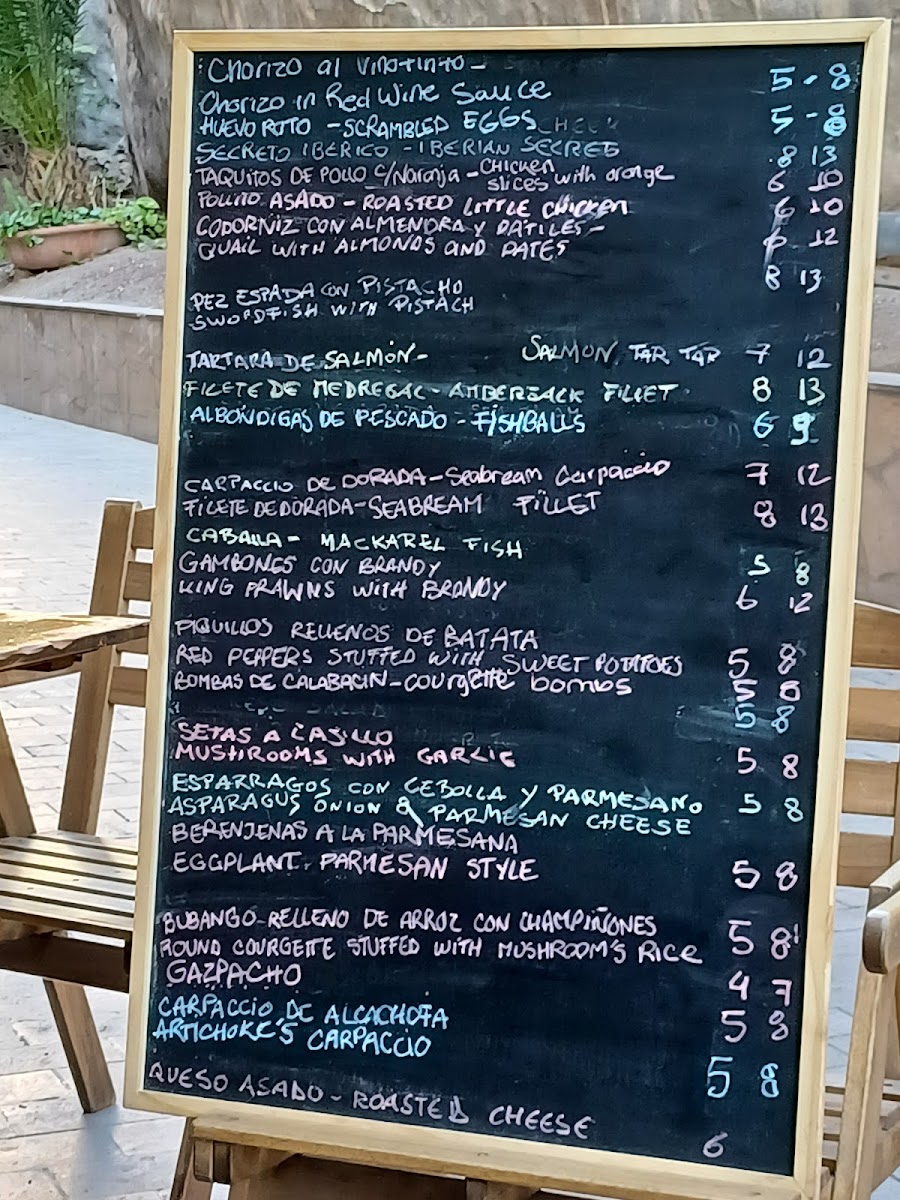 Chorizo al Vinotinto -
Chorizo in Red Wine Sauce 5 - 8
HUEVO ROTO - SCRAMBLED EGGS 5 - 8
SECRETO IBERICO - IBERIAN SECRET 8 13
TAQUITOS DE POLLO C/Naranja - Chicken slices with orange 6 10
POLLITO ASADO - ROASTED LITTLE CHICKEN 6 10
CODORNIZ CON ALMENDRA Y DATILES -
QUAIL WITH ALMONDS AND DATES 6 12
PEZ ESPADA CON PISTACHO 8 13
SWORDFISH WITH PISTACH
TARTARA DE SALMÓN - SALMON TAR TAR 7 12
FILETE DE MEDREGAL - AMBERJACK FILLET 8 13
ALBONDIGAS DE PESCADO - FISHBALLS 6 9
CARPACCIO DE DORADA - Seabream Carpaccio 7 12
FILETE DE DORADA - SEABREAM FILLET 8 13
CABALLA - MACKAREL FISH 5 8
GAMBONES CON BRANDY
KING PRAWNS WITH BRANDY 6 12
PIQUILLOS RELLENOS DE BATATA
RED PEPPERS STUFFED WITH SWEET POTATOES 5 8
BOMBAS DE CALABACIN - courgette bombs 5 8
5 8
SETAS A L'ASILLO
MUSHROOMS WITH GARLIC 5 8
ESPARRAGOS CON CEBOLLA Y PARMESANO 5 8
ASPARAGUS ONION & PARMESAN CHEESE
BERENJENAS A LA PARMESANA
EGGPLANT PARMESAN STYLE 5 8
BUBANGO RELLENO DE ARROZ CON CHAMPIÑONES
ROUND COURGETTE STUFFED WITH MUSHROOM'S RICE 5 8
GAZPACHO 4 7
CARPACCIO DE ALCACHOFA 5 8
ARTICHOKE'S CARPACCIO 5 8
QUESO ASADO - ROASTED CHEESE 6